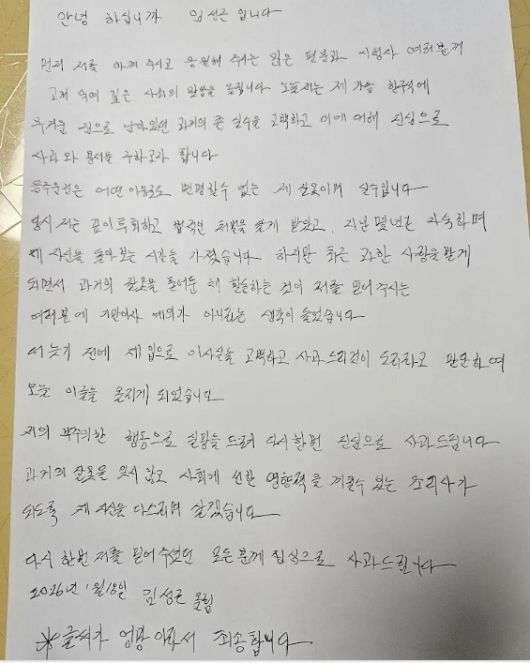 안녕 하십니까 임성근 입니다
먼저 저를 아껴 주시고 응원해 주시는 많은 팬분과 시청자 여러분께
고개 숙여 깊은 사죄의 말씀을 올립니다 오늘 저는 제 가슴 한구석에
무거운 짐으로 남아있던 과거의 큰 실수를 고백하고 이에 대해 진심으로
사과와 용서를 구하고자 합니다
음주운전은 어떤 이유로도 변명할수 없는 제 잘못이며 실수입니다
당시 저는 깊이 후회하고 법적인 처벌을 달게 받았고, 지난 몇년간 자숙하며
제 자신을 돌아보는 시간을 가졌습니다 하지만 최근 과한 사랑을 받게
되면서 과거의 잘못을 묻어둔 채 활동하는 것이 저를 믿어 주시는
여러분에 기만이자 예의가 아니라는 생각이 들었습니다
더 늦기 전에 제 입으로 이 사실을 고백하고 사과드리는것이 도리라고 판단하여
오늘 이글을 올리게 되었습니다
저의 부주의한 행동으로 실망을 드려 다시한번 진심으로 사과드립니다
과거의 잘못을 잊지 않고 사회에 선한 영향력을 끼칠수 있는 조리사가
되도록 제 자신을 다스리며 살겠습니다
다시 한번 저를 믿어 주셨던 모든 분께 진심으로 사과드립니다
2026년 1월18일 임성근 올림
※ 글씨가 엉망 이라서 죄송합니다